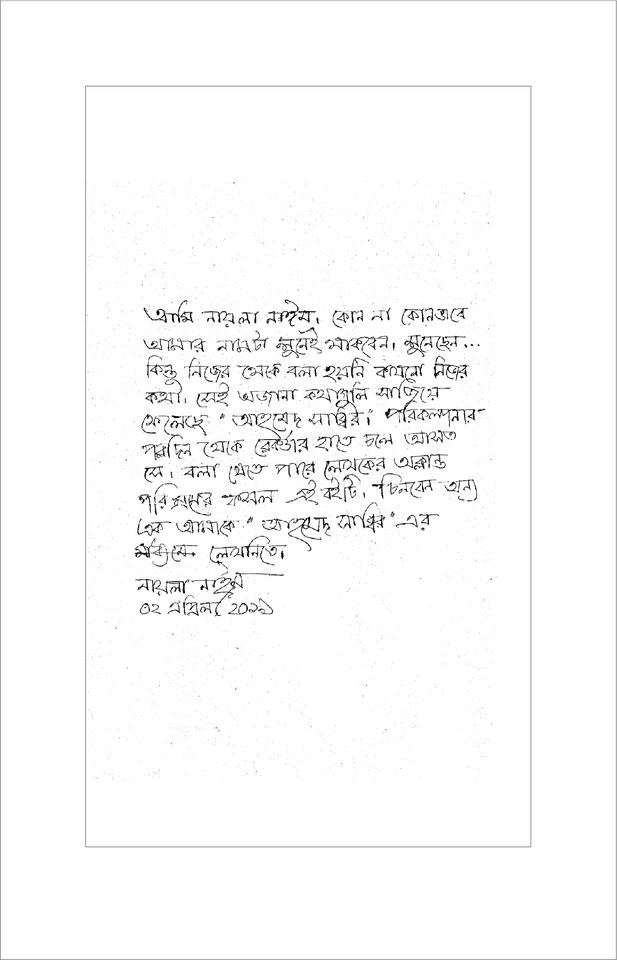 আমি নায়লা নাঈম, কোন না কোনভাবে
আমার নামটা শুনেই থাকবেন, শুনেছেন...
কিন্তু নিজের থেকে বলা হয়নি কখনো নিজের
কথা, সেই অজানা কথাগুলি সাজিয়ে
ফেলেছে "আহমেদ সাব্বির"। পরিকল্পনার
পরদিন থেকে রেকর্ডার হাতে চলে আসত
সে, বলা যেতে পারে লেখকের অক্লান্ত
পরিশ্রমের ফসল এই বইটি, চিনবেন অন্য
এক আমাকে "আহমেদ সাব্বির" এর
মাধ্যমে লেখনিতে।
নায়লা নাঈম
০২ এপ্রিল, ২০১৯